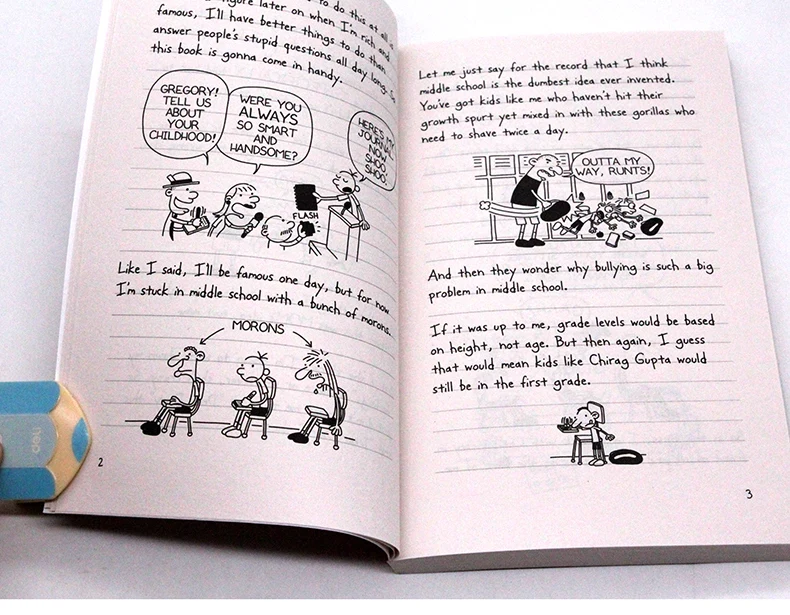 figure later on when I'm rich and
famous, I'll have better things to do than
answer people's stupid questions all day long. So
this book is gonna come in handy.
GREGORY!
TELL US
ABOUT
YOUR
CHILDHOOD!
WERE YOU
ALWAYS
SO SMART
AND
HANDSOME?
HERE'S MY
JOURNAL.
NOW
SHOO,
SHOO.
FLASH
Like I said, I'll be famous one day, but for now
I'm stuck in middle school with a bunch of morons.
MORONS
2
deli
Let me just say for the record that I think
middle school is the dumbest idea ever invented.
You've got kids like me who haven't hit their
growth spurt yet mixed in with these gorillas who
need to shave twice a day.
OUTTA MY
WAY, RUNTS!
And then they wonder why bullying is such a big
problem in middle school.
If it was up to me, grade levels would be based
on height, not age. But then again, I guess
that would mean kids like Chirag Gupta would
still be in the first grade.
3